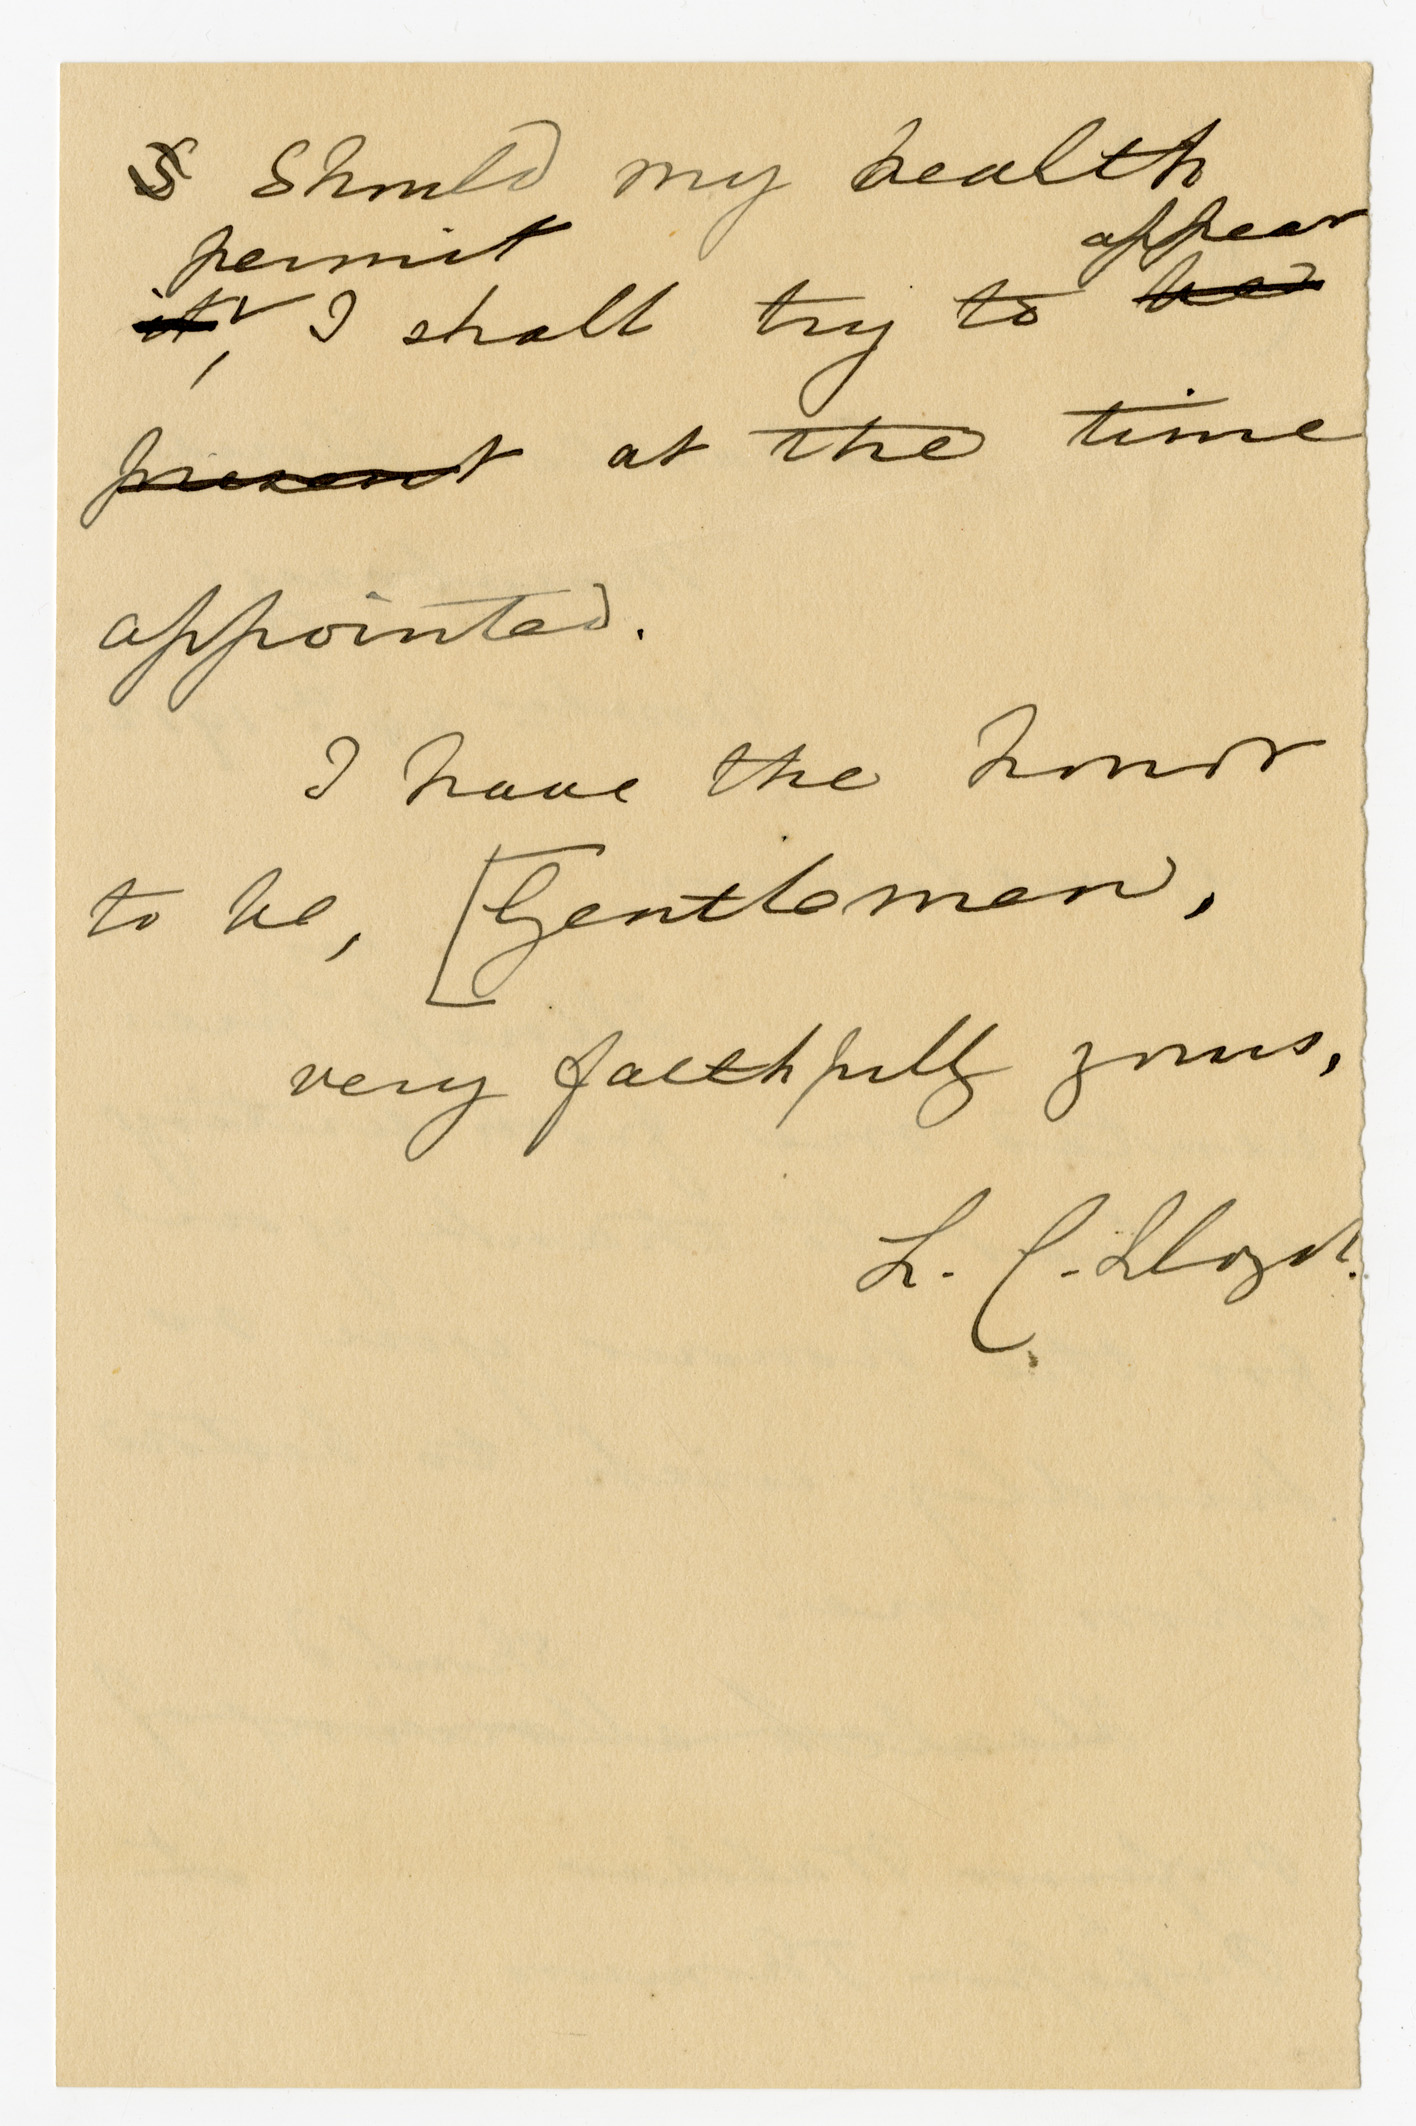 S Should my health
permit appear
it, I shall try to be
present at the time
appointed.
I have the honor
to be, [Gentlemen,
very faithfully yours,
L. C. Lloyd.